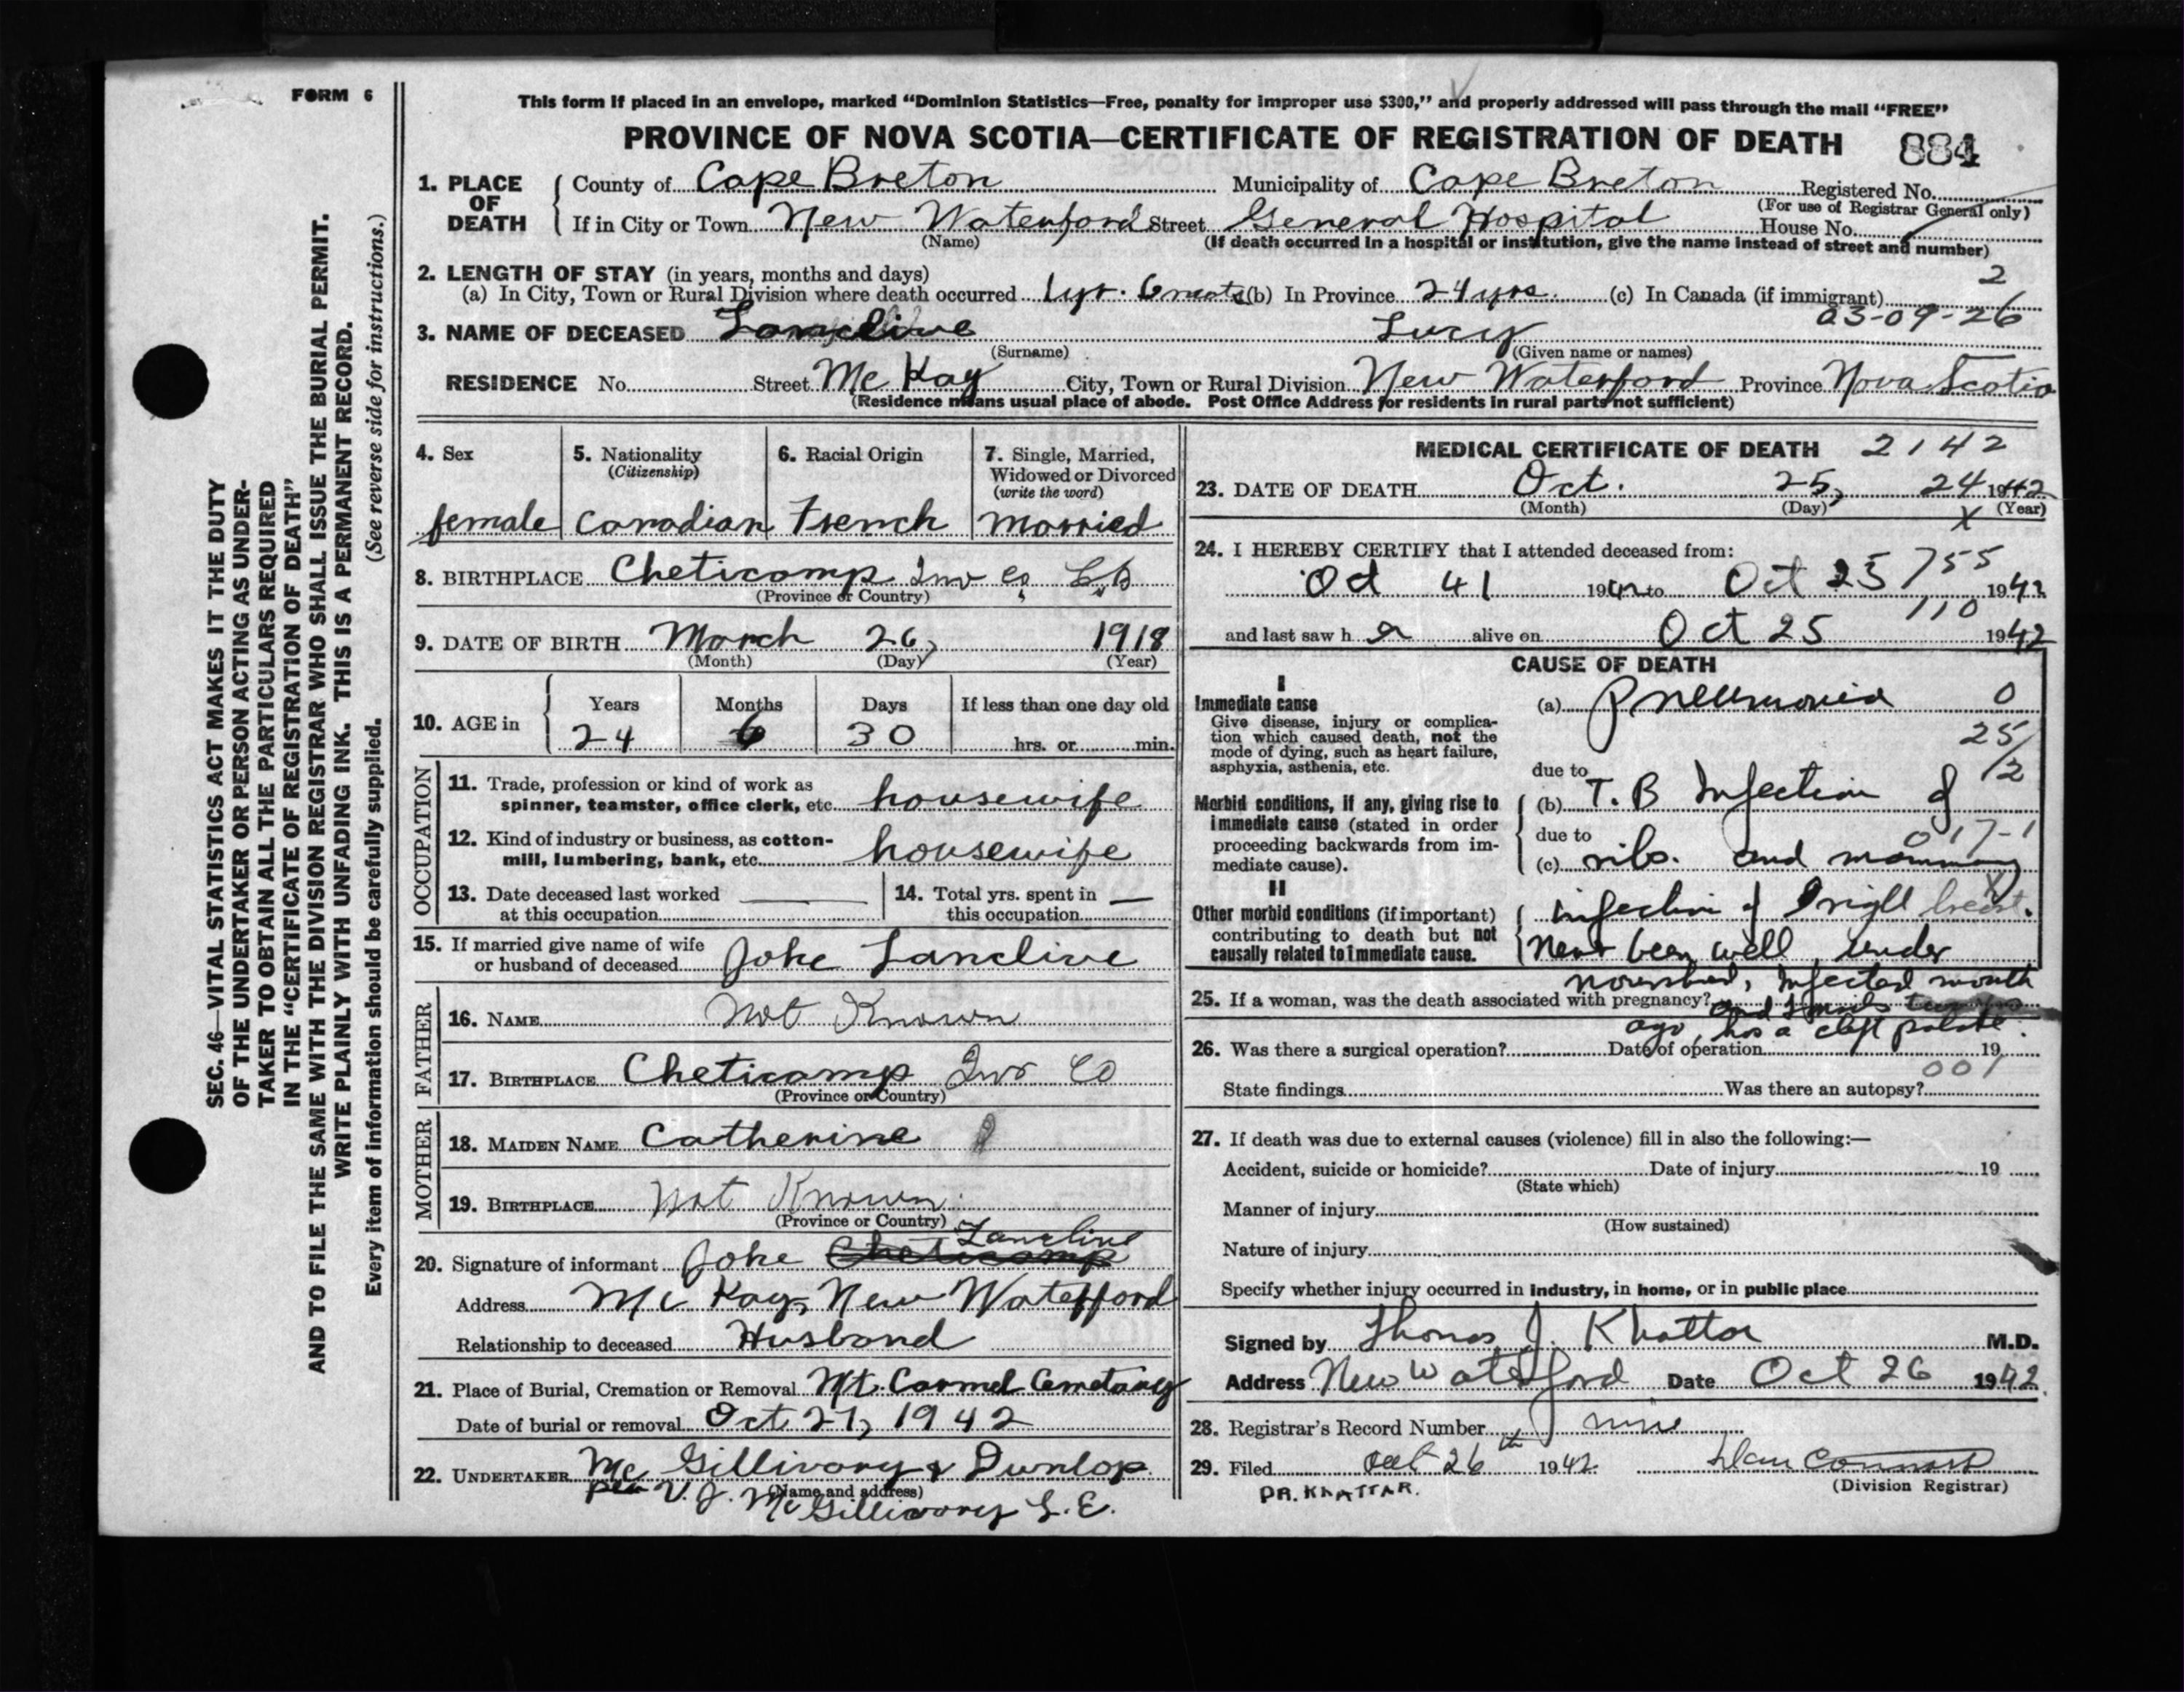 FORM 6
This form if placed in an envelope, marked “Dominion Statistics—Free, penalty for improper use $300,” and properly addressed will pass through the mail “FREE”
PROVINCE OF NOVA SCOTIA—CERTIFICATE OF REGISTRATION OF DEATH 884
SEC. 46—VITAL STATISTICS ACT MAKES IT THE DUTY
OF THE UNDERTAKER OR PERSON ACTING AS UNDER-
TAKER TO OBTAIN ALL THE PARTICULARS REQUIRED
IN THE “CERTIFICATE OF REGISTRATION OF DEATH”
AND TO FILE THE SAME WITH THE DIVISION REGISTRAR WHO SHALL ISSUE THE BURIAL PERMIT.
WRITE PLAINLY WITH UNFADING INK. THIS IS A PERMANENT RECORD.
Every item of information should be carefully supplied. (See reverse side for instructions.)
1. PLACE OF DEATH
County of Cape Breton Municipality of Cape Breton Registered No.
(For use of Registrar General only)
If in City or Town New Waterford Street General Hospital House No.
(Name) (If death occurred in a hospital or institution, give the name instead of street and number)
2. LENGTH OF STAY (in years, months and days) 2
(a) In City, Town or Rural Division where death occurred 1 yr. 6 (b) In Province 24 yrs. (c) In Canada (if immigrant)
03-09-26
3. NAME OF DECEASED Lucy
(Surname) (Given name or names)
RESIDENCE No. Street McKay City, Town or Rural Division New Waterford Province Nova Scotia
(Residence means usual place of abode. Post Office Address for residents in rural parts not sufficient)
4. Sex
female
5. Nationality
(Citizenship)
Canadian
6. Racial Origin
French
7. Single, Married,
Widowed or Divorced
(write the word)
married
8. BIRTHPLACE Cheticamp Inv Co C.B
(Province or Country)
9. DATE OF BIRTH March 26, 1918
(Month) (Day) (Year)
10. AGE in
Years Months Days If less than one day old
24 6 30 hrs. or min.
OCCUPATION
11. Trade, profession or kind of work as
spinner, teamster, office clerk, etc. housewife
12. Kind of industry or business, as cotton-
mill, lumbering, bank, etc. housewife
13. Date deceased last worked
at this occupation
14. Total yrs. spent in
this occupation
15. If married give name of wife
or husband of deceased Joke Lanclive
FATHER
16. NAME Not Known
17. BIRTHPLACE Cheticamp Inv Co
(Province or Country)
MOTHER
18. MAIDEN NAME Catherine
19. BIRTHPLACE Not Known
(Province or Country)
20. Signature of informant Joke Cheticamp
Address McKay, New Waterford
Relationship to deceased Husband
21. Place of Burial, Cremation or Removal Mt. Carmel Cemetary
Date of burial or removal Oct 27, 1942
22. UNDERTAKER McGillivary & Dunlop
(Name and address)
per V. J. McGillivary L.E.
MEDICAL CERTIFICATE OF DEATH 2142
23. DATE OF DEATH Oct. 25, 24 1942
(Month) (Day) (Year)
X
24. I HEREBY CERTIFY that I attended deceased from:
Oct 41 1942 to Oct 25 1942
755
110
and last saw h er alive on Oct 25 1942
CAUSE OF DEATH
I
Immediate cause
Give disease, injury or complica-
tion which caused death, not the
mode of dying, such as heart failure,
asphyxia, asthenia, etc.
(a) Pneumonia 0
25/2
due to
Morbid conditions, if any, giving rise to
immediate cause (stated in order
proceeding backwards from im-
mediate cause).
(b) T.B Infection of
due to 017-1
(c) ribs. and mammary
II
Other morbid conditions (if important)
contributing to death but not
causally related to immediate cause.
infection of right breast.
Never been well, under
nourished, Infected mouth
25. If a woman, was the death associated with pregnancy?
ago, has a cleft palate.
26. Was there a surgical operation? Date of operation 19
001
State findings Was there an autopsy?
27. If death was due to external causes (violence) fill in also the following:—
Accident, suicide or homicide? Date of injury 19
(State which)
Manner of injury
(How sustained)
Nature of injury
Specify whether injury occurred in industry, in home, or in public place
Signed by Thomas J. Khattar M.D.
Address New Waterford Date Oct 26 1942
28. Registrar’s Record Number nine
29. Filed Oct 26th 1942
(Division Registrar)
DR. KHATTAR.